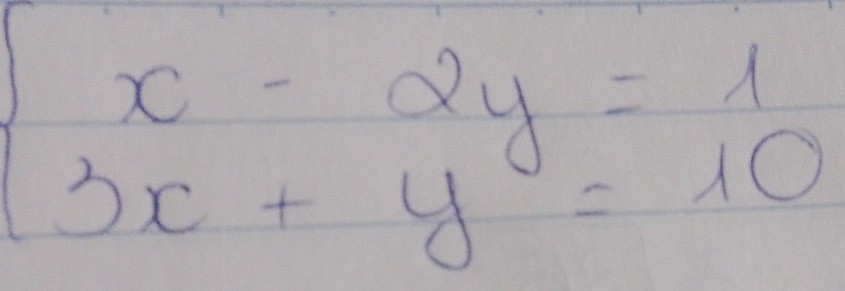 x - 2y = 1
3x + y = 10